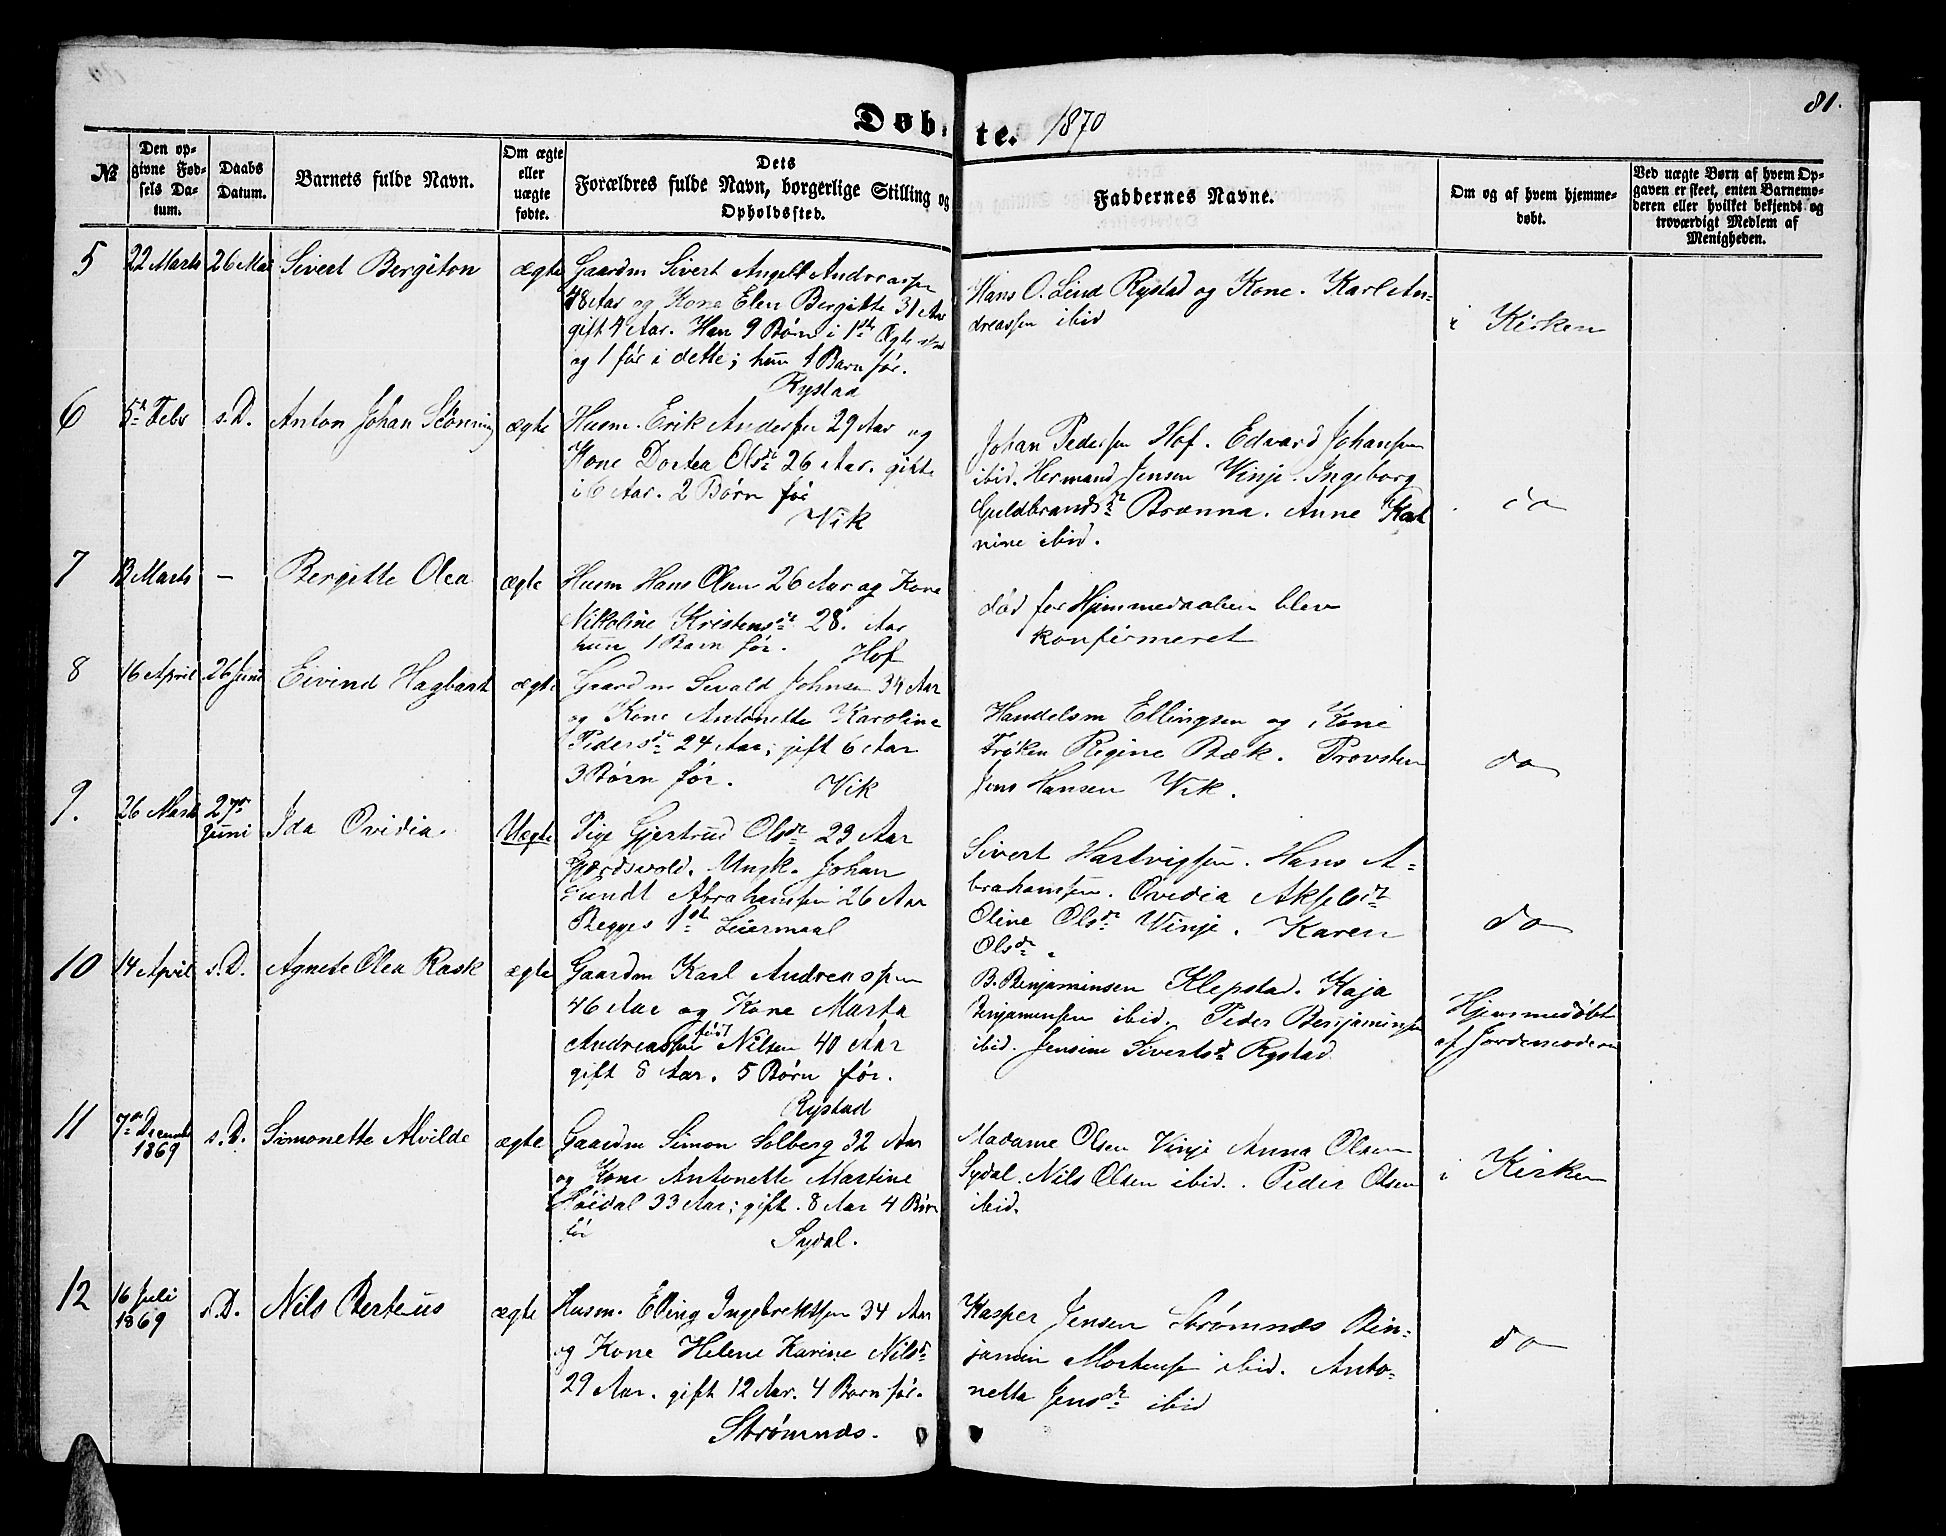 81.
Døbte. 1870
№
Den opgivne Fødsels Datum.
Daabs Datum.
Barnets fulde Navn.
Om ægte eller uægte fødte.
Dets Forældres fulde Navn, borgerlige Stilling og Opholdssted.
Faddernes Navne.
Om og af hvem hjemmedøbt.
Ved uægte Børn af hvem Opgaven er skeet, enten Barnemoderen eller hvilket bekjendt og troværdigt Medlem af Menigheden.
5 22 Marts 26 Mai Sivert Bergiton ægte
Gaardm Sivert Angell Andreassen
48 Aar og Kone Elen Bergitte 31 Aar
gift 4 Aar. Han 9 Børn i 1ste Ægtestand
og 1 før i dette; hun 1 Barn før.
Rystad
Hans O. Lind Rystad og Kone. Karl An-
dreassen ibid
i Kirken
6 5te Febr s. D. Anton Johan Støning ægte
Husm. Erik Andersen 29 Aar og
Kone Dortea Olsdr 26 Aar. gifte
i 6 Aar. 2 Børn før
Vik
Johan Pedersen Hof. Edvard Johansen
ibid. Hermand Jensen Vinje. Ingeborg
Guldbrandsdr Brænna. Anne Kat
nine ibid.
do
7 13 Marts — Bergitte Olea ægte
Husm Hans Olsen 26 Aar og Kone
Nikoline Kristensdr 28. Aar
hun 1 Barn før. Hof
død før Hjemmedaaben blev
konfirmeret
8 16 April 26 Juni Eivind Hagbart ægte
Gaardm Sevald Johnsen 34 Aar
og Kone Antonette Karoline
Pedersdr 24 Aar; gift 6 Aar
3 Børn før. Vik
Handelsm Ellingsen og Kone
Frøken Regine Bæk. Provsten
Jens Hansen Vik.
do
9. 26 Marts 27de Juni Ida Ovidia. Uægte
Pige Gjertrud Olsdr 23 Aar
Gjærdsvold. Ungk. Johan
Sundt Abrahamsen 26 Aar
Begges 1st Leiermaal
Sivert Hartvigsen. Hans A-
brahamsen. Ovidia Akselsdr
Oline Olsdr Vinje. Karen
Olsdr.
do
10 14 April s. D. Agnete Olea Rask ægte
Gaardm Karl Andreassen
46 Aar og Kone Marta
Andreassen født Nilsen 40 Aar
gift 8 Aar. 5 Børn før.
Rystad
B. Benjaminsen Klepstad. Kaja
Benjaminsen ibid. Peder Benjaminsen
ibid. Jensine Sivertsd Rystad
Hjemmedøbt
af Jordemoderen
11 7de December 1869 s. D. Simonette Alvilde ægte
Gaardm Simon Solberg 32 Aar
og Kone Antonette Martine
Høidal 33 Aar; gift. 8 Aar 4 Børn
før
Sydal.
Madame Olsen Vinje Anna Olsen
Sydal. Nils Olsen ibid. Peder Olsen
ibid.
i Kirken
12 16 Juli 1869 s. D. Nils Berteus ægte
Husm. Elling Ingebrektsen 34 Aar
og Kone Helene Karine Nilsdr
29 Aar. gift 12 Aar. 4 Børn før.
Strømnæs.
Kasper Jensen Strømnæs Ben-
jamin Mortensen ibid. Anto-
netta Jensdr ibid
do